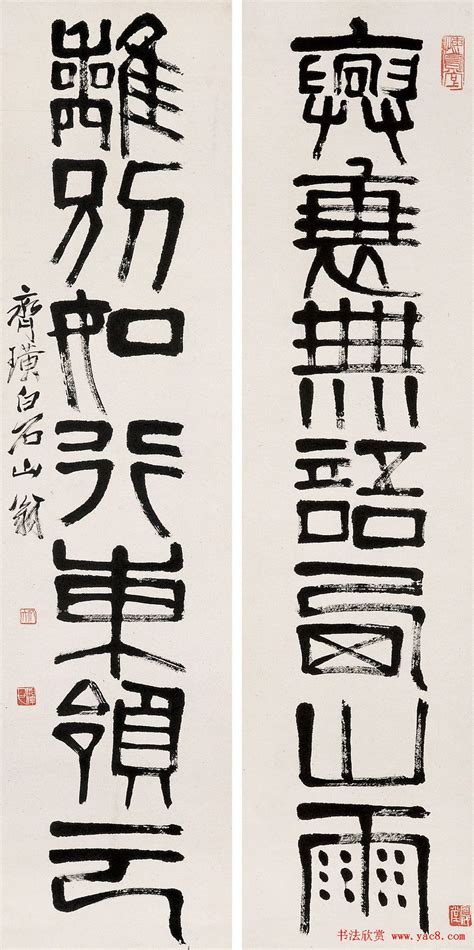 興衰無語西山雨
離別如行東領云
齊璜白石山翁
书法欣赏 www.yac8.com